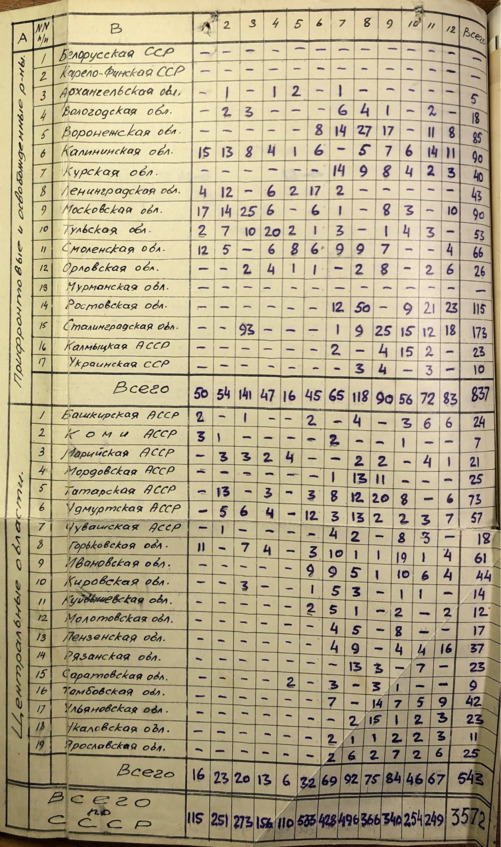 А №№ п/п В 2 3 4 5 6 7 8 9 10 11 12 Всего
Прифронтовые и освобожденные р-ны.
1 Белорусская ССР – – – – – – – – – – – – –
2 Карело-Финская ССР – – – – – – – – – – – – –
3 Архангельская обл. – 1 – 1 2 – 1 – – – – – 5
4 Вологодская обл. – 2 3 – – – 6 4 1 – 2 – 18
5 Воронежская обл. – – – – – 8 14 27 17 – 11 8 85
6 Калининская обл. 15 13 8 4 1 6 – 5 7 6 14 11 90
7 Курская обл. – – – – – – 14 9 8 4 2 3 40
8 Ленинградская обл. 4 12 – 6 2 17 2 – – – – – 43
9 Московская обл. 17 14 25 6 – 6 1 – 8 3 – 10 90
10 Тульская обл. 2 7 10 20 2 1 3 – 1 4 3 – 53
11 Смоленская обл. 12 5 – 6 8 6 9 9 7 – – 4 66
12 Орловская обл. – – 2 4 1 1 – 2 8 – 2 6 26
13 Мурманская обл. – – – – – – – – – – – – –
14 Ростовская обл. – – – – – – 12 50 – 9 21 23 115
15 Сталинградская обл. – – 93 – – – 1 9 25 15 12 18 173
16 Калмыцкая АССР – – – – – – 2 – 4 15 2 – 23
17 Украинская ССР – – – – – – – 3 4 – 3 – 10
Всего 50 54 141 47 16 45 65 118 90 56 72 83 837
Центральные области.
1 Башкирская АССР 2 – 1 – – 2 – 4 – 3 6 6 24
2 Коми АССР 3 1 – – – – 2 – – 1 – – 7
3 Марийская АССР – 3 3 2 4 – – 2 2 – 4 1 21
4 Мордовская АССР – – – – – – 1 13 11 – – – 25
5 Татарская АССР – 13 – 3 – 3 8 12 20 8 – 6 73
6 Удмуртская АССР – 5 6 4 – 12 3 13 2 2 3 7 57
7 Чувашская АССР – 1 – – – – 4 2 – 8 3 – 18
8 Горьковская обл. 11 – 7 4 – 3 10 1 1 19 1 4 61
9 Ивановская обл. – – – – – 9 9 5 1 10 6 4 44
10 Кировская обл. – – 3 – – – 1 5 3 – 1 1 – 14
11 Куйбышевская обл. – – – – – 2 5 1 – 2 – 2 12
12 Молотовская обл. – – – – – – 4 5 – 8 – – 17
13 Пензенская обл. – – – – – – 4 9 – 4 4 16 37
14 Рязанская обл. – – – – – – – 13 3 – 7 – 23
15 Саратовская обл. – – – – 2 – 3 – 3 1 – – 9
16 Тамбовская обл. – – – – – – 7 – 14 7 5 9 42
17 Ульяновская обл. – – – – – – – 2 15 1 2 3 23
18 Чкаловская обл. – – – – – – 2 1 1 2 2 3 11
19 Ярославская обл. – – – – – – 2 6 2 7 2 6 25
Всего 16 23 20 13 6 32 69 92 75 84 46 67 543
Всего
по
СССР 115 251 273 156 110 533 428 496 366 340 254 249 3572